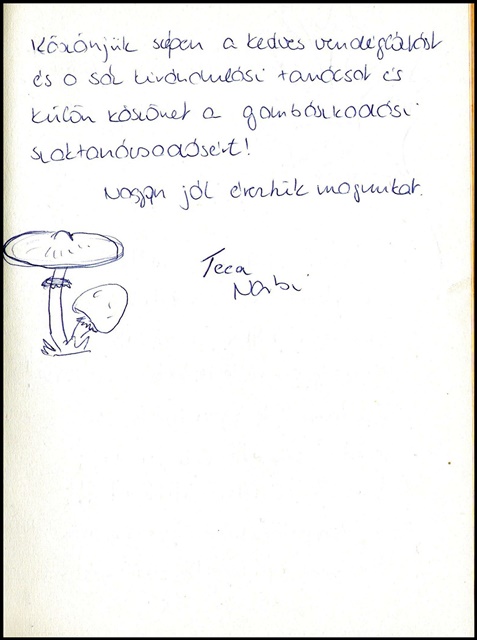 Köszönjük szépen a kedves vendéglátást
és a sok kirándulási tanácsot és
külön köszönet a gombászkodási
szaktanácsadásért!
Nagyon jól éreztük magunkat.
Teca
Norbi